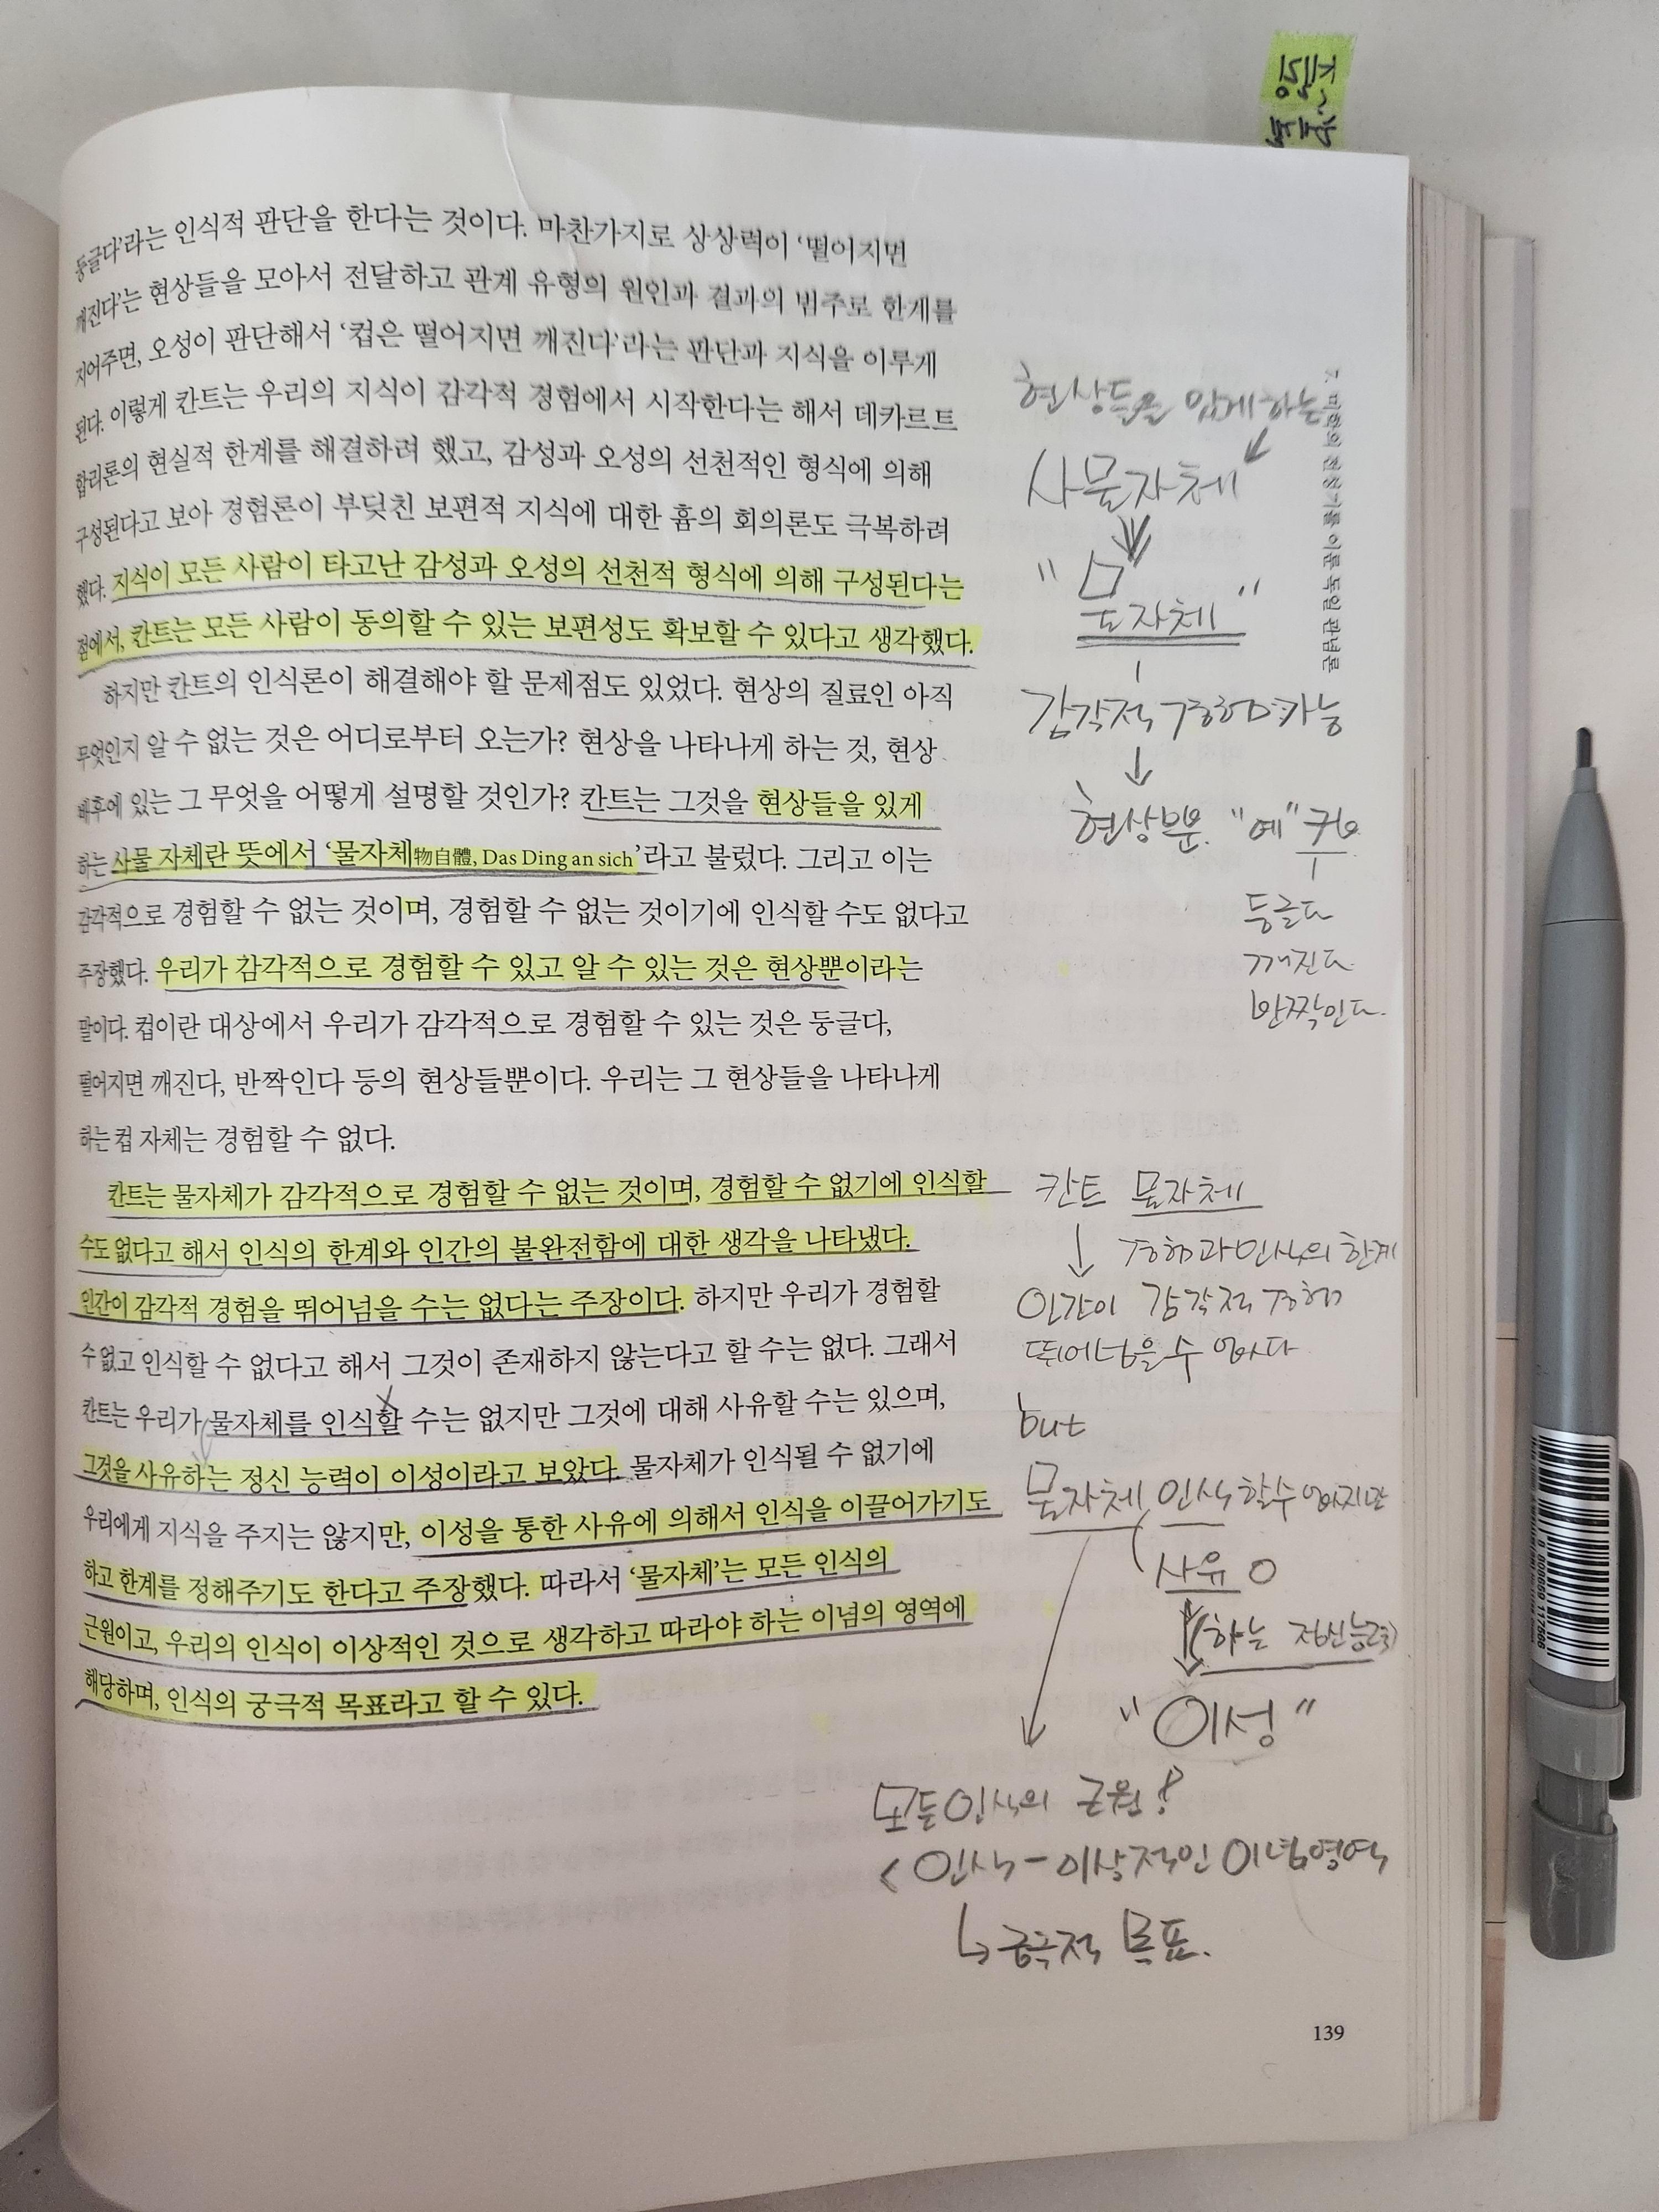 둥글다'라는 인식적 판단을 한다는 것이다. 마찬가지로 상상력이 '떨어지면
깨진다'는 현상들을 모아서 전달하고 관계 유형의 원인과 결과의 범주로 한계를
지어주면, 오성이 판단해서 '컵은 떨어지면 깨진다'라는 판단과 지식을 이루게
된다. 이렇게 칸트는 우리의 지식이 감각적 경험에서 시작한다는 해서 데카르트
합리론의 현실적 한계를 해결하려 했고, 감성과 오성의 선천적인 형식에 의해
구성된다고 보아 경험론이 부딪친 보편적 지식에 대한 흄의 회의론도 극복하려
했다. 지식이 모든 사람이 타고난 감성과 오성의 선천적 형식에 의해 구성된다는
점에서, 칸트는 모든 사람이 동의할 수 있는 보편성도 확보할 수 있다고 생각했다.
하지만 칸트의 인식론이 해결해야 할 문제점도 있었다. 현상의 질료인 아직
무엇인지 알 수 없는 것은 어디로부터 오는가? 현상을 나타나게 하는 것, 현상
배후에 있는 그 무엇을 어떻게 설명할 것인가? 칸트는 그것을 현상들을 있게
하는 사물 자체란 뜻에서 '물자체物自體, Das Ding an sich'라고 불렀다. 그리고 이는
감각적으로 경험할 수 없는 것이며, 경험할 수 없는 것이기에 인식할 수도 없다고
주장했다. 우리가 감각적으로 경험할 수 있고 알 수 있는 것은 현상뿐이라는
말이다. 컵이란 대상에서 우리가 감각적으로 경험할 수 있는 것은 둥글다,
떨어지면 깨진다, 반짝인다 등의 현상들뿐이다. 우리는 그 현상들을 나타나게
하는 컵 자체는 경험할 수 없다.
칸트는 물자체가 감각적으로 경험할 수 없는 것이며, 경험할 수 없기에 인식할
수도 없다고 해서 인식의 한계와 인간의 불완전함에 대한 생각을 나타냈다.
인간이 감각적 경험을 뛰어넘을 수는 없다는 주장이다. 하지만 우리가 경험할
수 없고 인식할 수 없다고 해서 그것이 존재하지 않는다고 할 수는 없다. 그래서
칸트는 우리가 물자체를 인식할 수는 없지만 그것에 대해 사유할 수는 있으며,
그것을 사유하는 정신 능력이 이성이라고 보았다. 물자체가 인식될 수 없기에
우리에게 지식을 주지는 않지만, 이성을 통한 사유에 의해서 인식을 이끌어가기도
하고 한계를 정해주기도 한다고 주장했다. 따라서 '물자체'는 모든 인식의
근원이고, 우리의 인식이 이상적인 것으로 생각하고 따라야 하는 이념의 영역에
해당하며, 인식의 궁극적 목표라고 할 수 있다.
7. 철학의 전성기를 이룬 독일 관념론
현상들을 있게 하는
사물자체
"물자체"
감각적 경험가능
현상뿐. "예" 컵
둥글다
깨진다
반짝인다.
칸트 물자체
경험과 인식의 한계
인간이 감각적 경험
뛰어넘을 수 없다
but
물자체 인식할수 없지만
사유 O
(하는 정신능력)
"이성"
모든 인식의 근원!
< 인식 - 이상적인 이념영역
↳ 궁극적 목표.
139
8 808658 117566